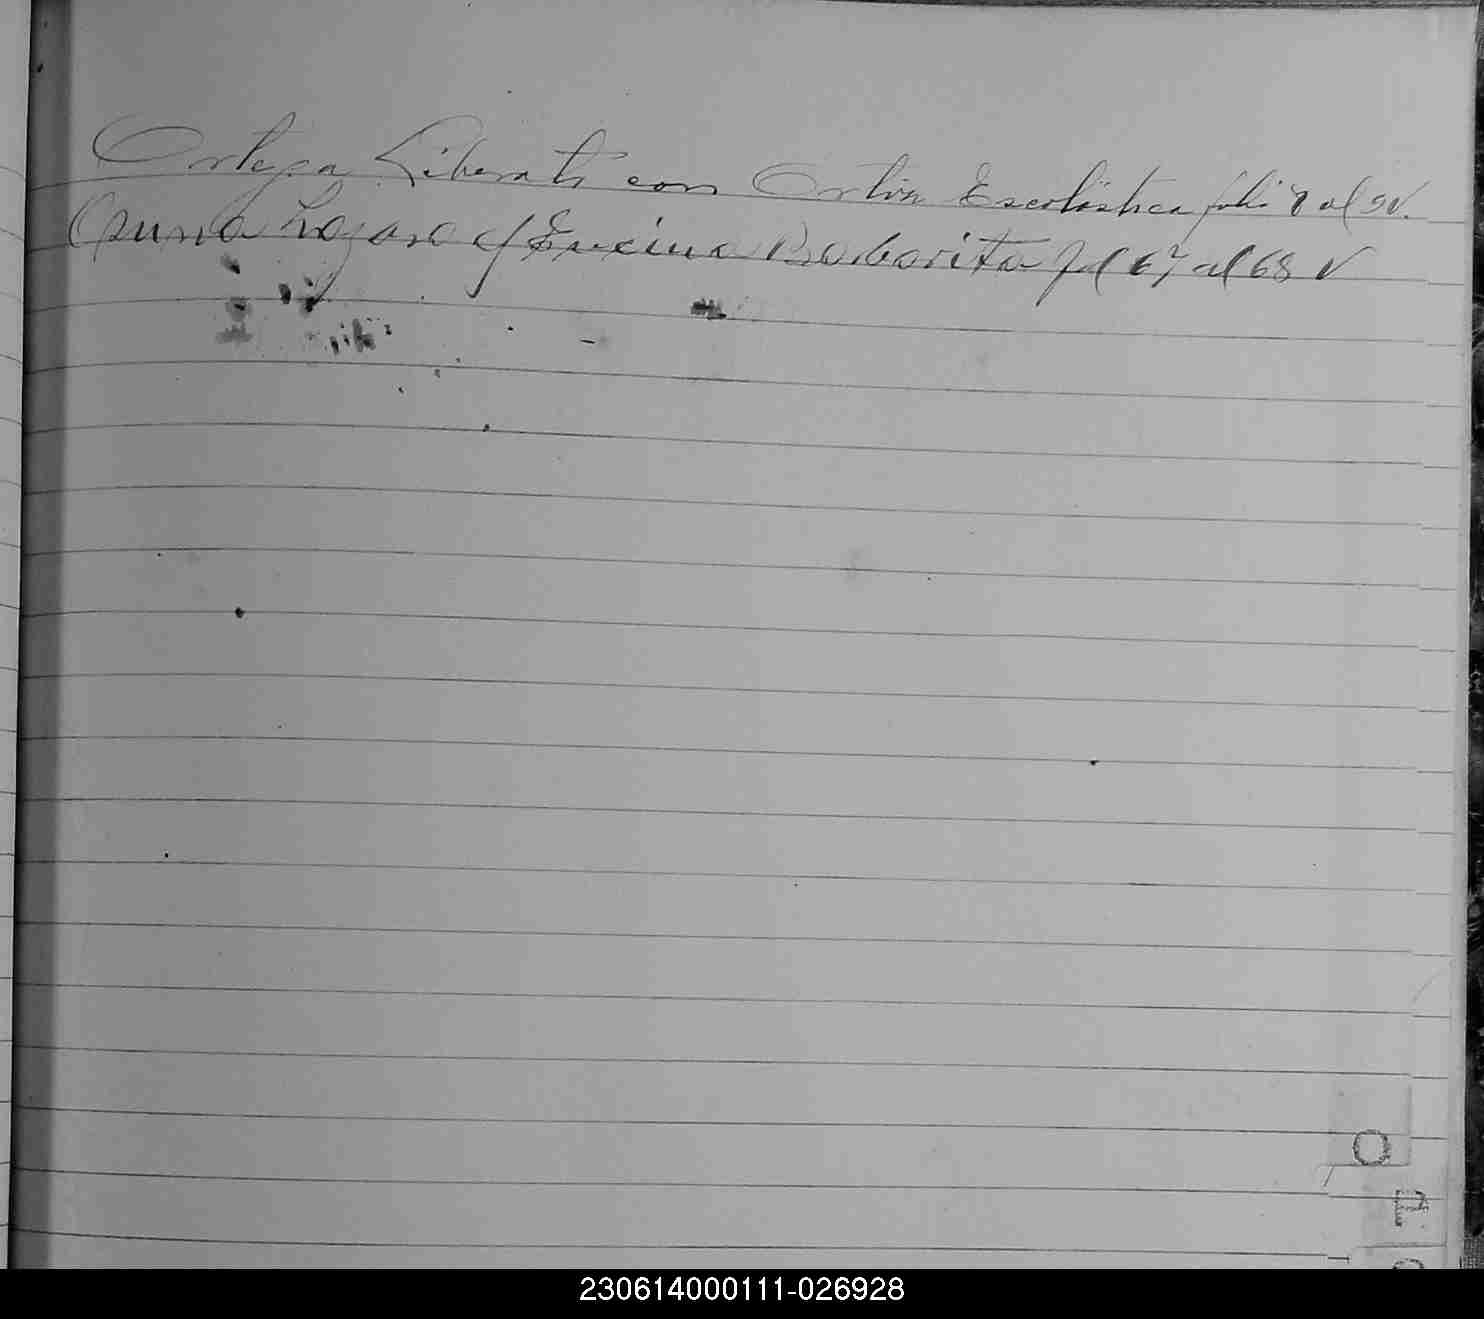 Ortega Liberato con Ortin Escolástica folio 8 al 9 v.
Osuna Lazaro c/ Encina Barbarita fol 67 al 68 v
O
P
230614000111-026928